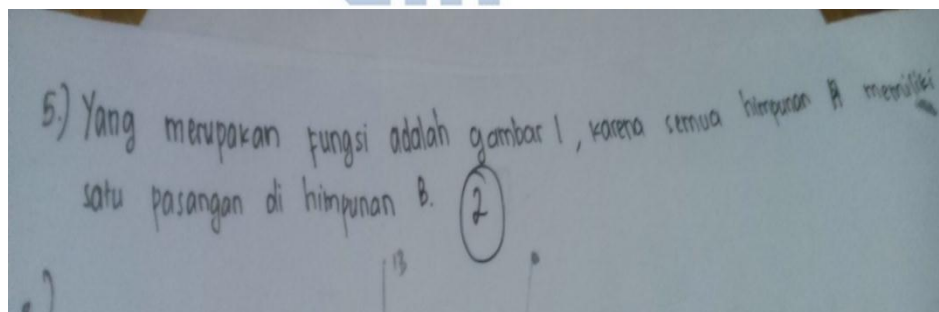 5.) Yang merupakan fungsi adalah gambar 1, karena semua himpunan A memiliki
satu pasangan di himpunan B. 2
B